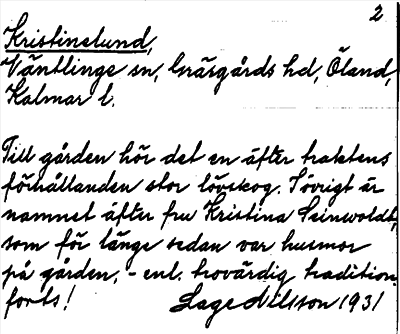 2
Kristinelund,
Ventlinge sn, Gräsgårds hd, Öland,
Kalmar l.
Till gården hör det en äfter traktens
förhållanden stor lövskog. I övrigt är
namnet äfter fru Kristina Leinwoldt,
som för länge sedan var husmor
på gården, - enl. trovärdig tradition.
forts! Lage Nilsson 1931